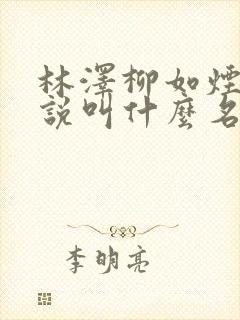 林澤柳如煙
說叫什麼名
李明亮